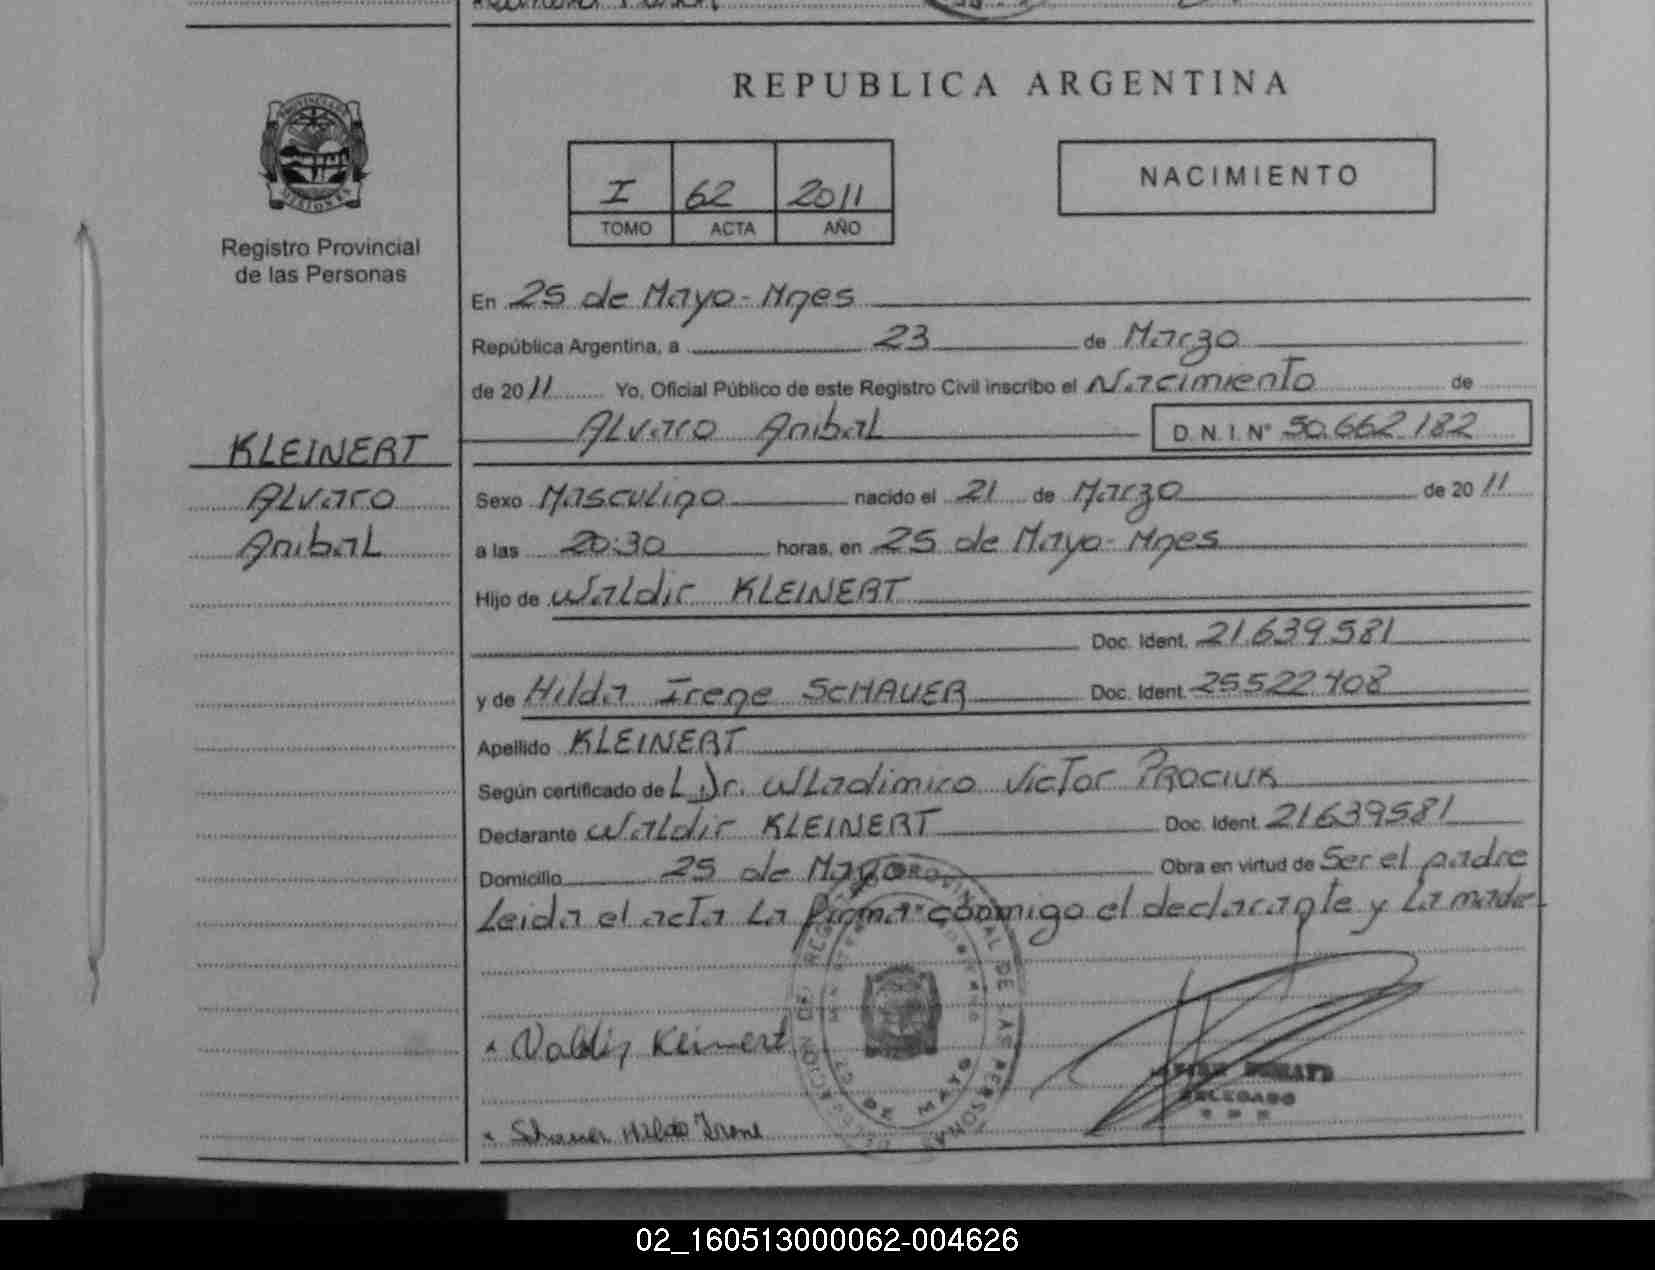 REPUBLICA ARGENTINA
PROVINCIA DE MISIONES
Registro Provincial
de las Personas
I 62 2011
TOMO ACTA AÑO
NACIMIENTO
En 25 de Mayo-Mnes
República Argentina, a 23 de Marzo
de 2011 Yo, Oficial Público de este Registro Civil inscribo el Nacimiento de
Alvaro Anibal D.N.I.Nº 50.662.182
KLEINERT
Alvaro
Anibal
Sexo Masculino nacido el 21 de Marzo de 2011
a las 20:30 horas, en 25 de Mayo-Mnes
Hijo de Waldir KLEINERT
Doc. Ident. 21.639.581
y de Hilda Irene SCHAUER Doc. Ident. 25.522.408
Apellido KLEINERT
Según certificado del Dr. Wladimiro Victor PROCIUK
Declarante Waldir KLEINERT Doc. Ident. 21639581
Domicilio 25 de Mayo Obra en virtud de Ser el padre
Leida el acta la firma conmigo el declarante y la madre
REGISTRO PROVINCIAL DE LAS PERSONAS
25 DE MAYO
Schauer Hilda Irene
DELEGADO
02_160513000062-004626